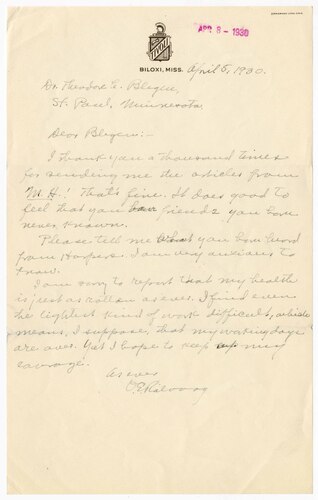 TIVOLI
BILOXI, MISS.
APR 8 - 1930
April 5, 1930.
Dr. Theodore C. Blegen,
St. Paul, Minnesota
Dear Blegen:-
I thank you a thousand times
for sending me the articles from
"M H." That's fine. It does good to
feel that you have friends you have
never known.
Please tell me what you have heard
from Harpers. I am very anxious to
know.
I am sorry to report that my health
is just as as ever. I find even
the lightest kind of work difficult, which
means, I suppose, that my working days
are over. Yet I hope to keep up my
courage.
As ever
O. E. Rølvaag